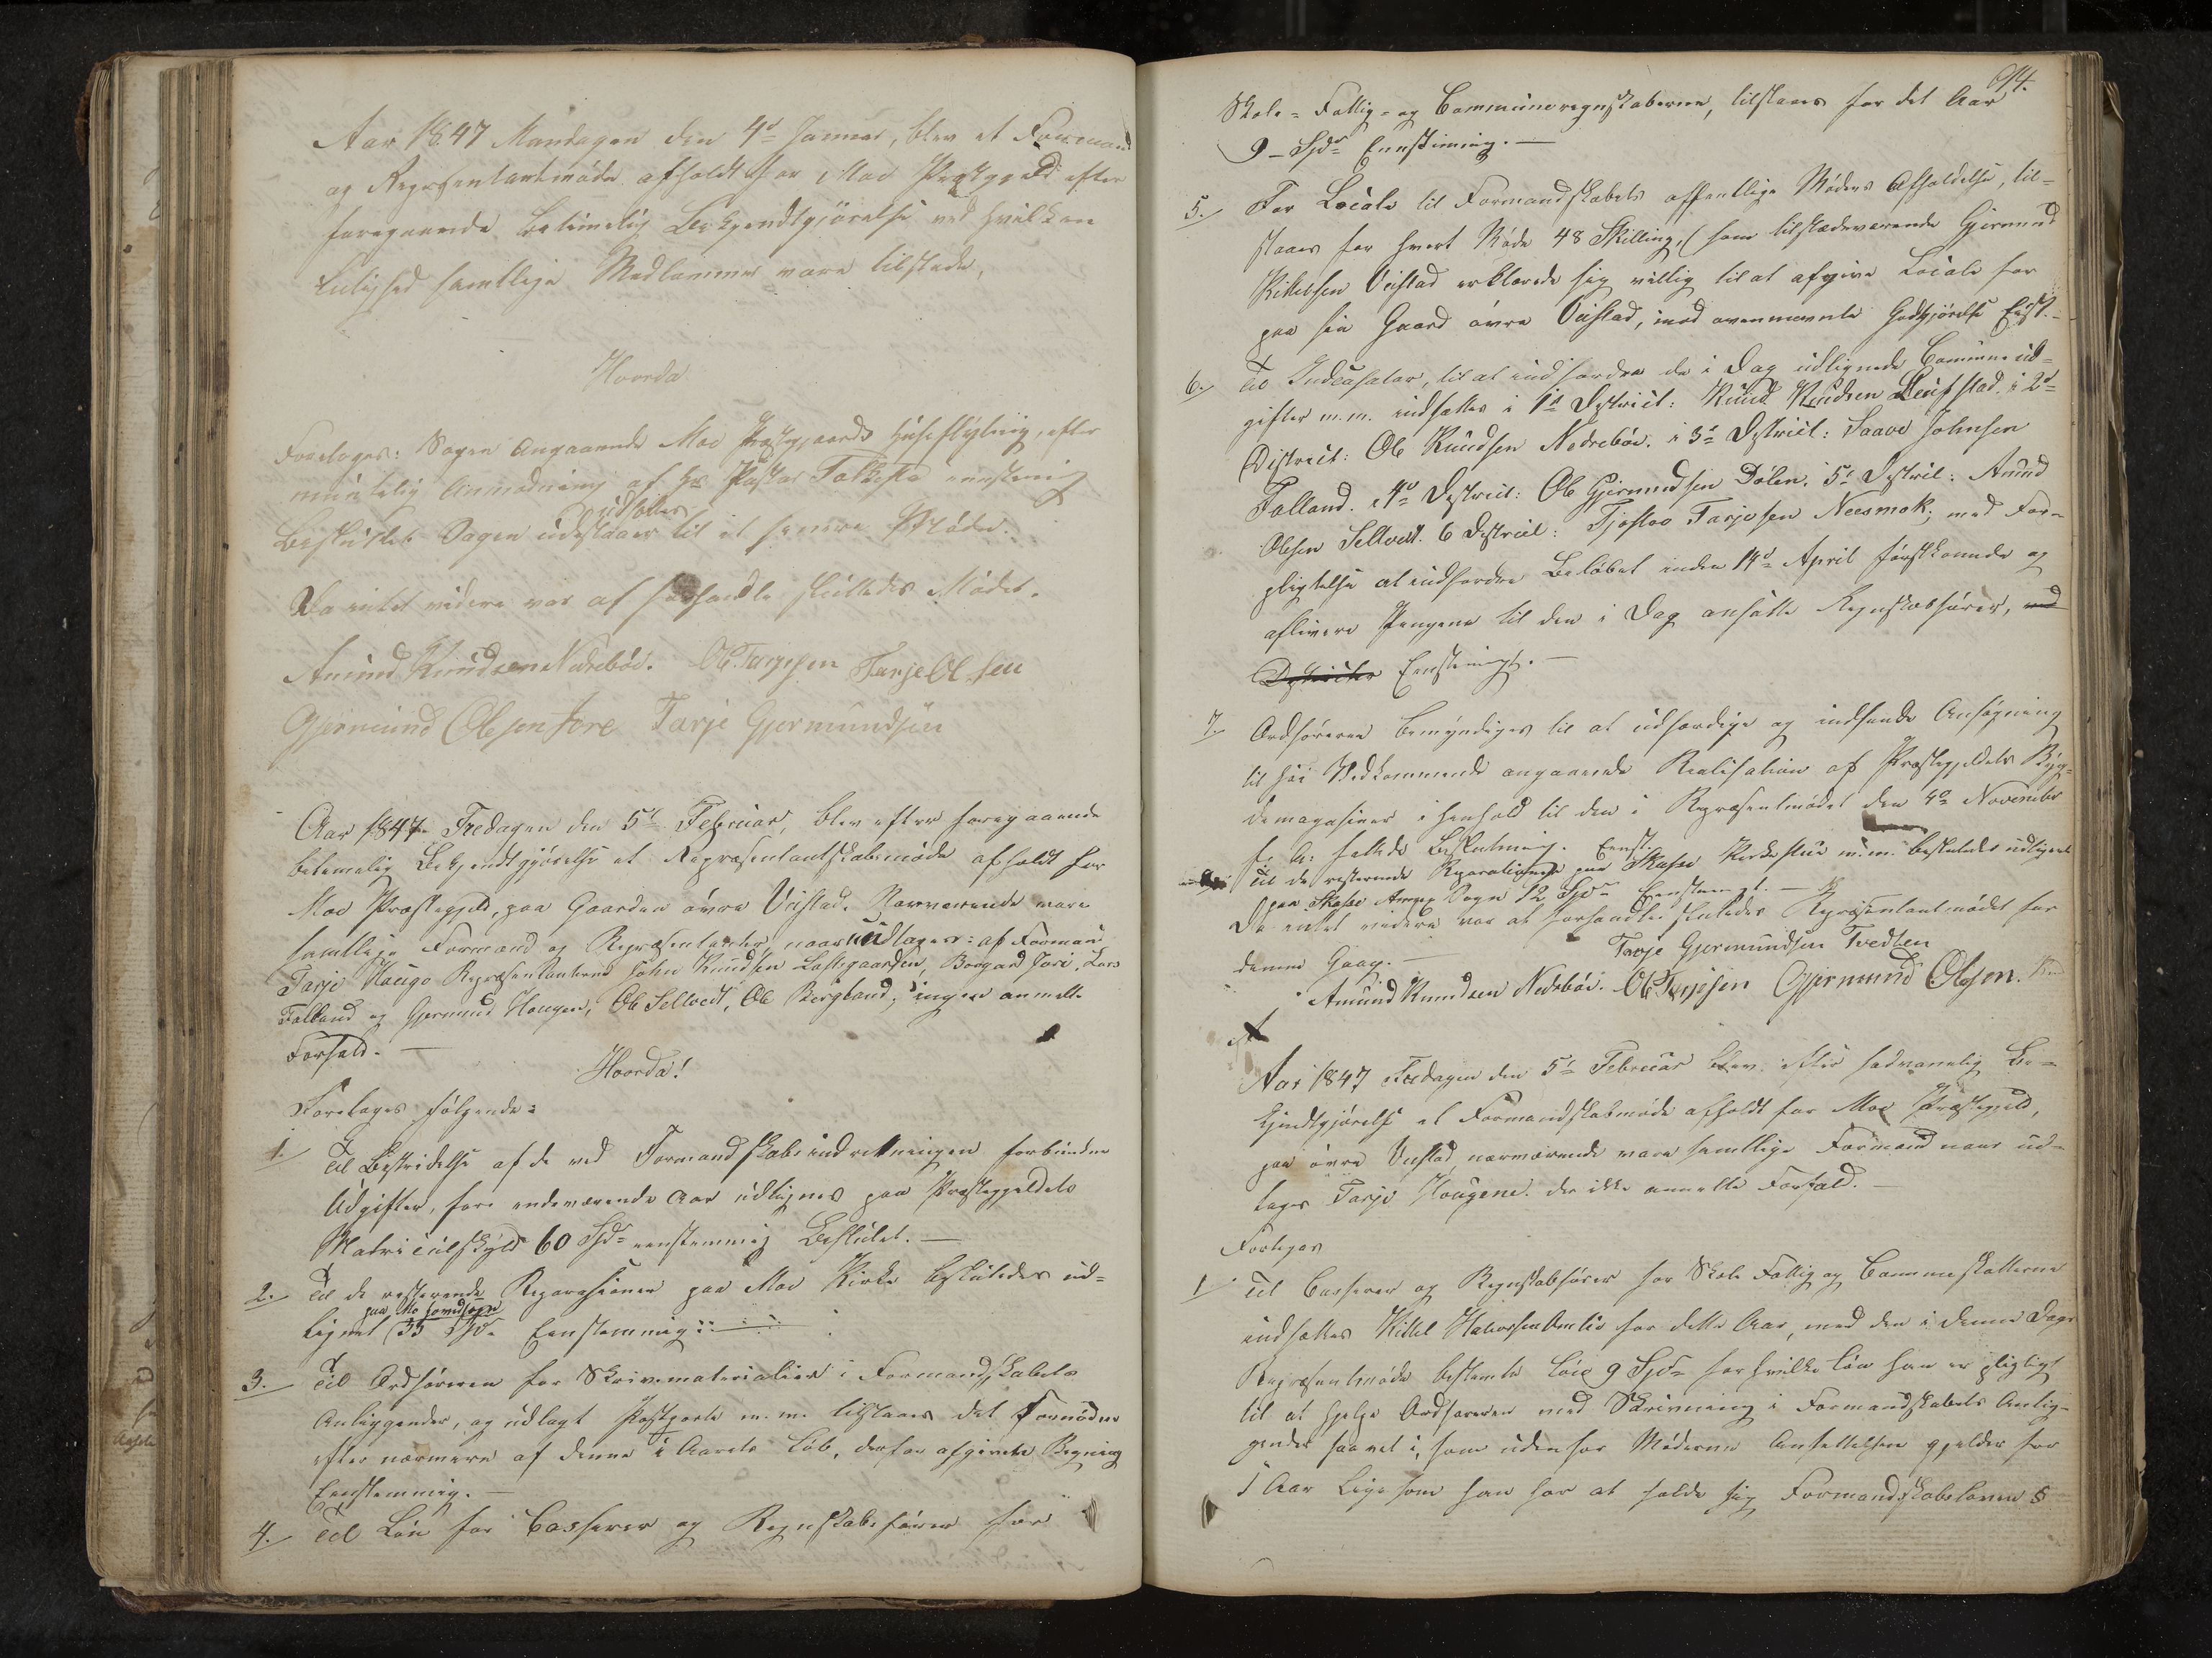 Aar 1847 Mandagen den 4d Januar, blev et Formand
og Repræsentantmøde afholdt for Moe Præstgjeld efter
foregaaende betimelig Bekjendtgjørelse ved hvilken
Leilighed samtlige Medlemmer vare tilstæde,
Hvorda
Foretoges: Sagen angaaende Moe Præstegaards Huseflytning, efter
mundtlig Anmodning af Hr Pastor enstemig
udsættes
Besluttet Sagen udestaaer til et senere Møde.
Da intet videre var at forhandle sluttedes Mødet.
Amund Knudsen Nedrebøe. Ol Tarjesen Tarje Olsen
Gjermund Olsen Jore Tarje Gjermundsen
Aar 1847 Fredagen den 5te Februar, blev efter foregaaende
betimelig Bekjendtgjørelse et Repræsentantskabsmøde afholdt for
Moe Præstegjeld, paa Gaarden øvre Veistad. Nærværende vare
samtlige Formænd og Repræsentanter, naar undtages: af Formænd
Tarje Haugo Repræsentanterne John Knudsen Loftsgaarden, Jore, Lars
Falland og Gjermund Haugen, Ole Selvedt, Ole Bergland; ingen anmelte
Forfald. —
Hvorda!
Foretoges følgende:
1. Til Bestridelse af de ved Formandskabsindretningen forbundne
Udgifter, for indeværende Aar udlignes paa Præstegjeldets
Matriculskyld 60 Spd enstemmig Besluttet. —
2. Til de resterende Reparasioner paa Moe Kirke besluttedes ud-
paa Mo hovedsogn
lignet 35 Spd. Eenstemmig
3. Til Ordføreren for Skrivematerialier i Formandskabets
Anliggender, og udlagt Postporto m.m. tilstaaes det Fornødne
efter nærmere af denne i Aarets Løb, derfor afgivende Regning
Eenstemmig. —
4. Til Løn for Casserer og Regnskabsfører for
94.
Skole- Fattig- og Communeregnskaberne, tilstaaes for det Aar
9 - Spd Eenstemig. —
5. For Locale til Formandskabets offentlige Møders Afholdelse, til-
staaes for hvert Møde 48 Skilling, (som tilstædeværende Gjermund
Kittelsen Veistad erklærede sig villig til at afgive Locale for
paa sin Gaard øvre Veistad, imod ovennævnte Godtgjørelse Enst. -
6. Til Indcasator, til at indfordre de i Dag udlignede Commune ud-
gifter m.m. indsættes i 1ste District: Knud Knudsen i 2d
District: Ole Knudsen Nedrebøe. i 3die District: Saave Johnsen
Falland. 4d District: Ole Gjermundsen Dølen. 5te District: Amund
Olsen Sellvedt. 6 District: Tjøstov Tarjesen Neesmok; med For-
pligtelse at indfordre Beløbet inden 14d April førstkomende og
aflevere Pengene til den i Dag ansatte Regnskabsfører, ved
Districter Eenstemigt. —
7. Ordføreren bemyndiges til at udfærdige og indsende Ansøgning
til høi Vedkommende angaaende Realisation af Præstegjeldets Byg-
demagasiner i henhold til den i Repræsentmødet den 4d November
f. A. fattede Beslutning. Eenst.
Til de resterende Reparationer paa Skafse Kirke m.m. besluttedes udlignet
paa Skafse Annex Sogn 12 Spd Eenstemigt. —
Da intet videre var at forhandle sluttedes Repræsentantmødet for
denne Gang. — Tarje Gjermundsen Tvedten
Amund Knudsen Nedrebøe. Ol Tarjesen Gjermund Olsen.
Aar 1847 Fredagen den 5te Februar blev efter sædvanelig Be-
kjendtgjørelse et Formandskabsmøde afholdt for Moe Præstegjeld,
paa øvre Veistad, nærværende vare samtlige Formænd naar und-
tages Tarje Haugene. der ikke anmelte Forfald. —
Foretoges
1/ Til Casserer og Regnskabsfører for Skole Fattig og Communeskatterne
indsættes Kittel Halvorsen for dette Aar, med den i denne Dags
Repræsentmøde bestemte Løn 9 Spd for hvilke Løn han er pligtigt
til at hjelpe Ordføreren med Skrivning i Formandskabets Anlig-
gender saavel i, som udenfor Møderne Ansettelsen gjelder for
1 Aar Lige som han har at holde sig Formandskabsloven §